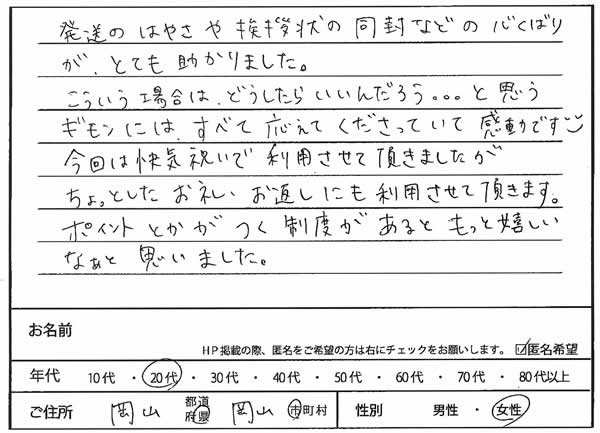 発送のはやさや挨拶状の同封などの心くばり
が、とても助かりました。
こういう場合は、どうしたらいいんだろう...と思う
ギモンには、すべて応えてくださっていて感動です
今回は快気祝いで利用させて頂きましたが
ちょっとしたお礼、お返しにも利用させて頂きます。
ポイントとかがつく制度があるともっと嬉しい
なぁと思いました。
お名前
HP掲載の際、匿名をご希望の方は右にチェックをお願いします。 ☑匿名希望
年代 10代 ・ 20代 ・ 30代 ・ 40代 ・ 50代 ・ 60代 ・ 70代 ・ 80代以上
ご住所 岡山 都道府県 岡山 市町村 性別 男性 ・ 女性